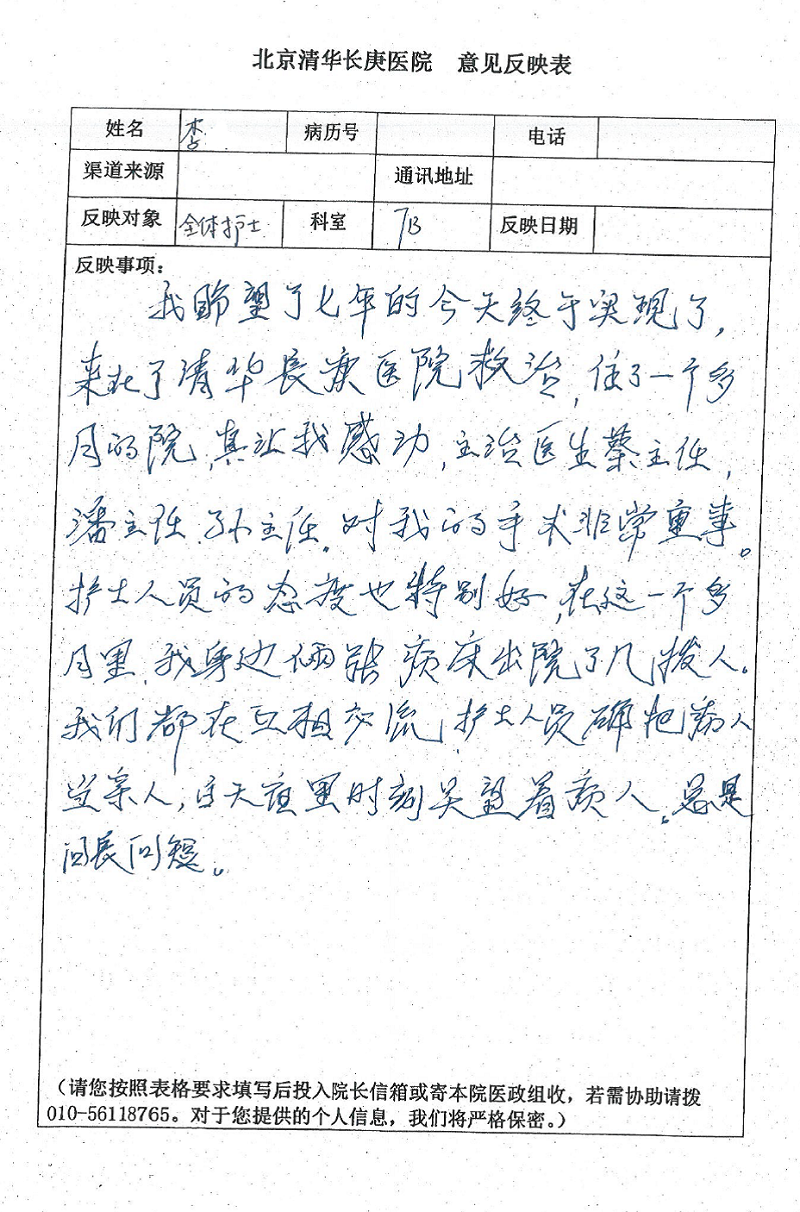 北京清华长庚医院 意见反映表
姓名 李 病历号 电话
渠道来源 通讯地址
反映对象 全体护士 科室 7B 反映日期
反映事项：
我盼望了七年的今天终于实现了，
来北了清华長庚医院救治，住了一个多
月的院，真让我感动，主治医生蔡主任，
潘主任、孙主任。对我的手术非常重事。
护士人员的态度也特别好，在这一个多
月里，我身边俩张病床出院了几拨人。
我们都在互相交流，护士人员确把病人
当亲人，白天夜里时刻关望着病人。总是
问長问短。
（请您按照表格要求填写后投入院长信箱或寄本院医政组收，若需协助请拨
010-56118765。对于您提供的个人信息，我们将严格保密。）